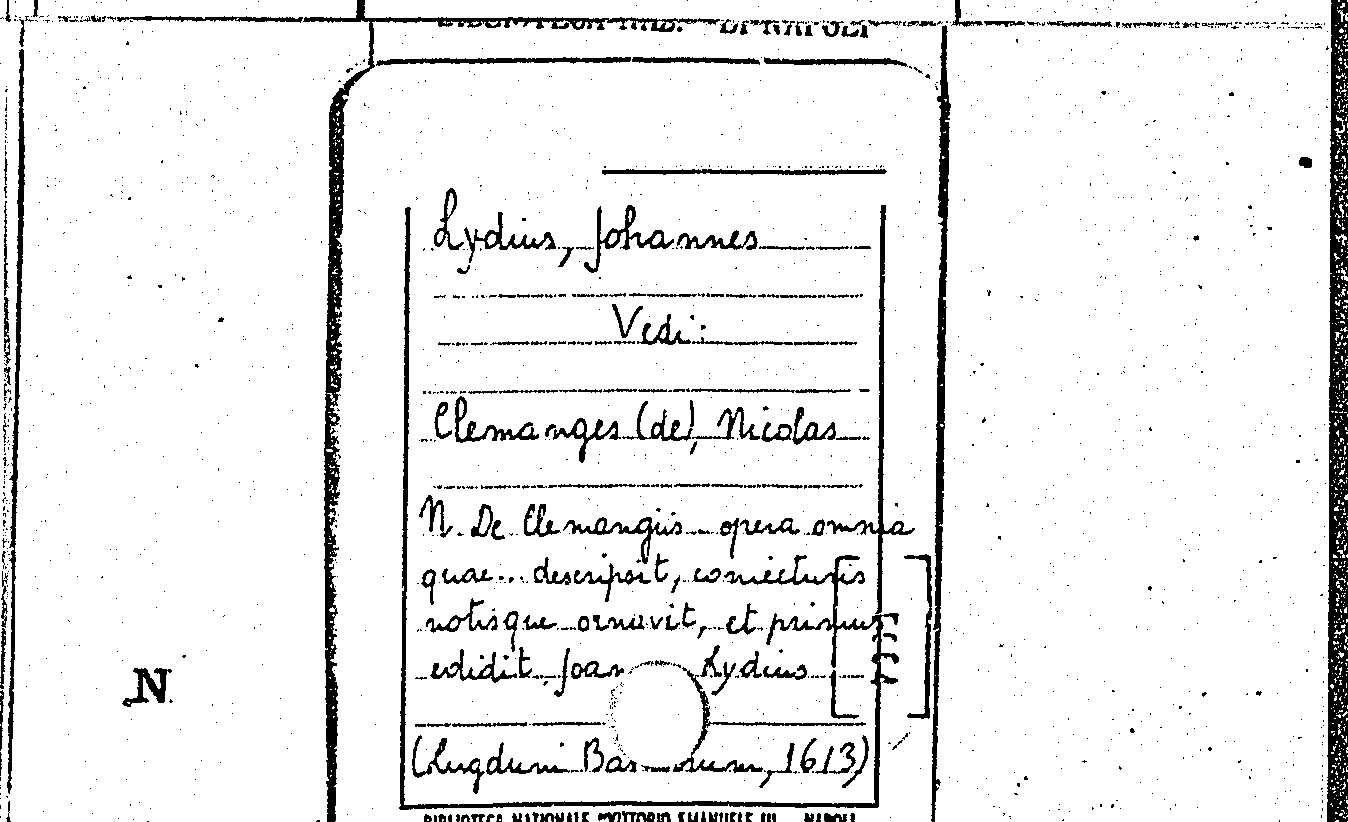 NAZ. DI NAPOLI
Lydius, Johannes
Vedi:
Clemanges (de), Nicolas
N. De Clemangiis opera omnia
quae... descripsit, coniecturis
notisque ornavit, et primus
edidit Joan Lydius
N
(Lugduni Ba num, 1613)
BIBLIOTECA NAZIONALE "VITTORIO EMANUELE III" NAPOLI